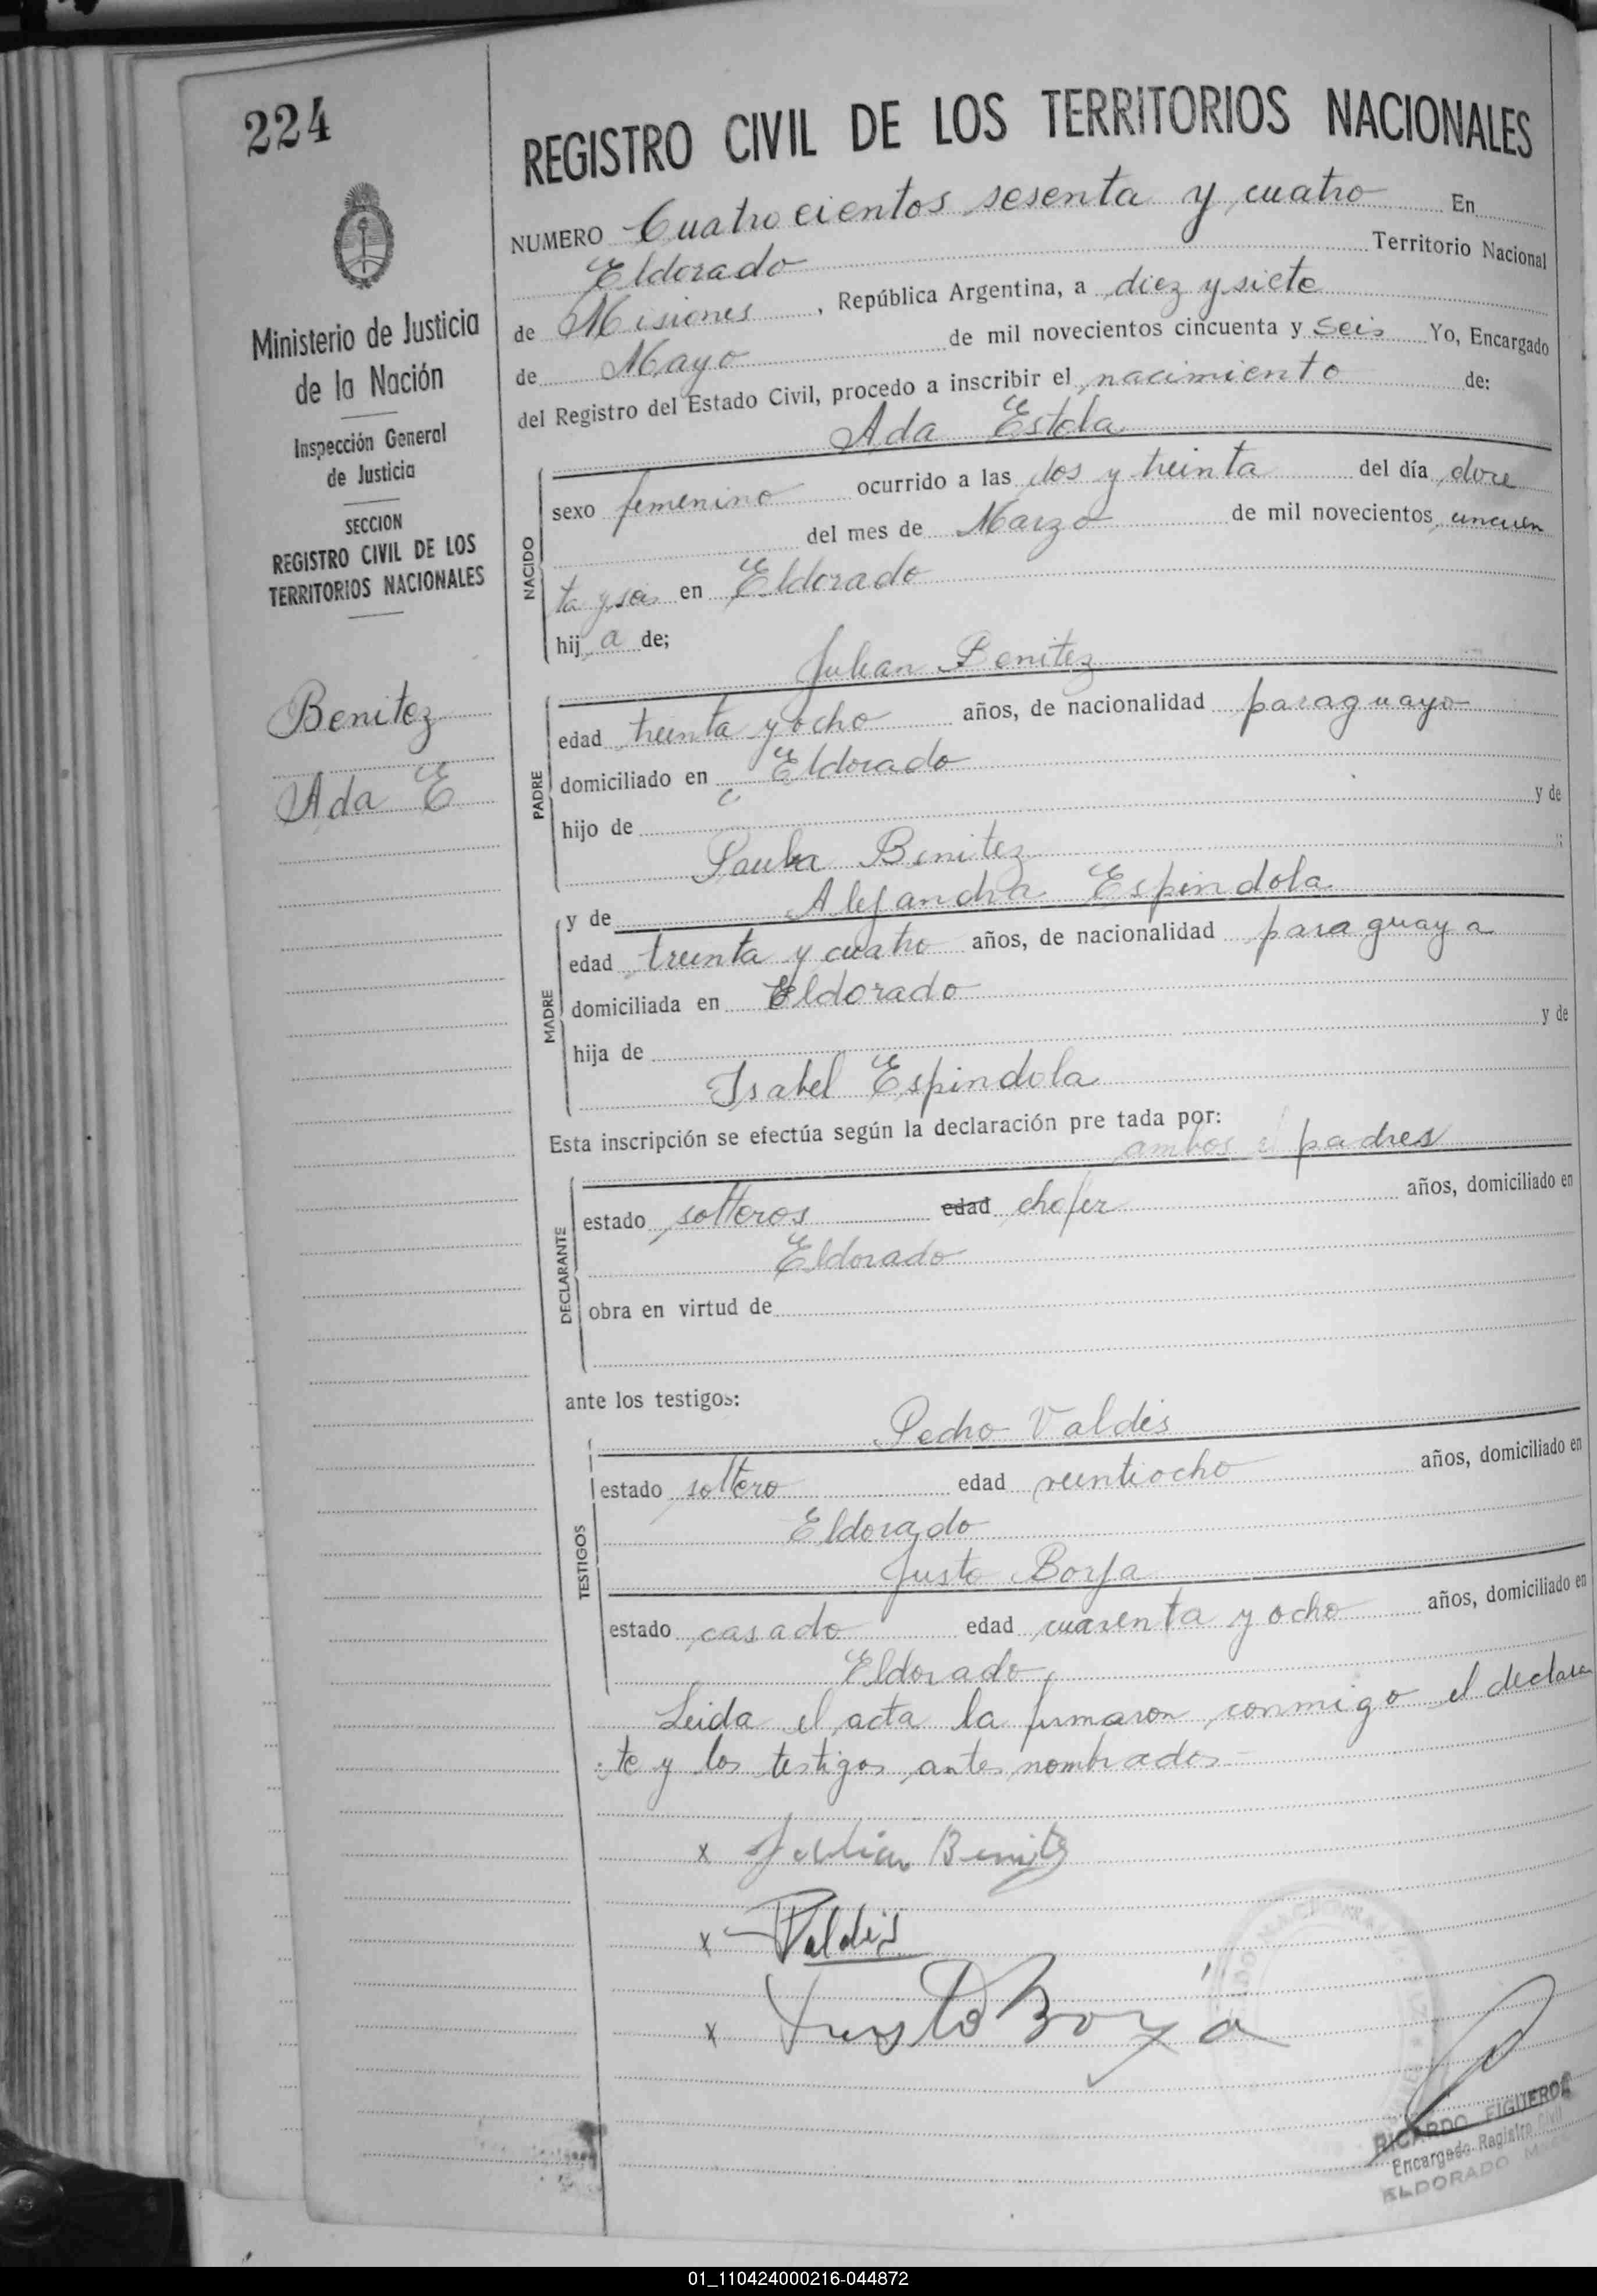 224
Ministerio de Justicia
de la Nación
Inspección General
de Justicia
SECCION
REGISTRO CIVIL DE LOS
TERRITORIOS NACIONALES
Benitez
Ada E
REGISTRO CIVIL DE LOS TERRITORIOS NACIONALES
NUMERO Cuatrocientos sesenta y cuatro En
Eldorado Territorio Nacional
de Misiones, República Argentina, a diez y siete
de Mayo de mil novecientos cincuenta y seis Yo, Encargado
del Registro del Estado Civil, procedo a inscribir el nacimiento de:
Ada Estela
NACIDO
sexo femenino ocurrido a las dos y treinta del día doce
del mes de Marzo de mil novecientos cincuen
ta y seis en Eldorado
hija de;
Julian Benitez
PADRE
edad treinta y ocho años, de nacionalidad paraguayo
domiciliado en Eldorado
hijo de y de
Paula Benitez
y de Alejandra Espindola
MADRE
edad treinta y cuatro años, de nacionalidad paraguaya
domiciliada en Eldorado
hija de y de
Isabel Espindola
Esta inscripción se efectúa según la declaración pre tada por:
ambos padres
DECLARANTE
estado solteros edad chofer años, domiciliado en
Eldorado
obra en virtud de
ante los testigos:
Pedro Valdés
TESTIGOS
estado soltero edad veintiocho años, domiciliado en
Eldorado
Justo Borja
estado casado edad cuarenta y ocho años, domiciliado en
Eldorado
Leida el acta la firmaron conmigo el declaran
te y los testigos antes nombrados
x Julian Benitez
x Valdés
x Justo Borja
RICARDO FIGUEROA
Encargado Registro Civil
ELDORADO
01_110424000216-044872